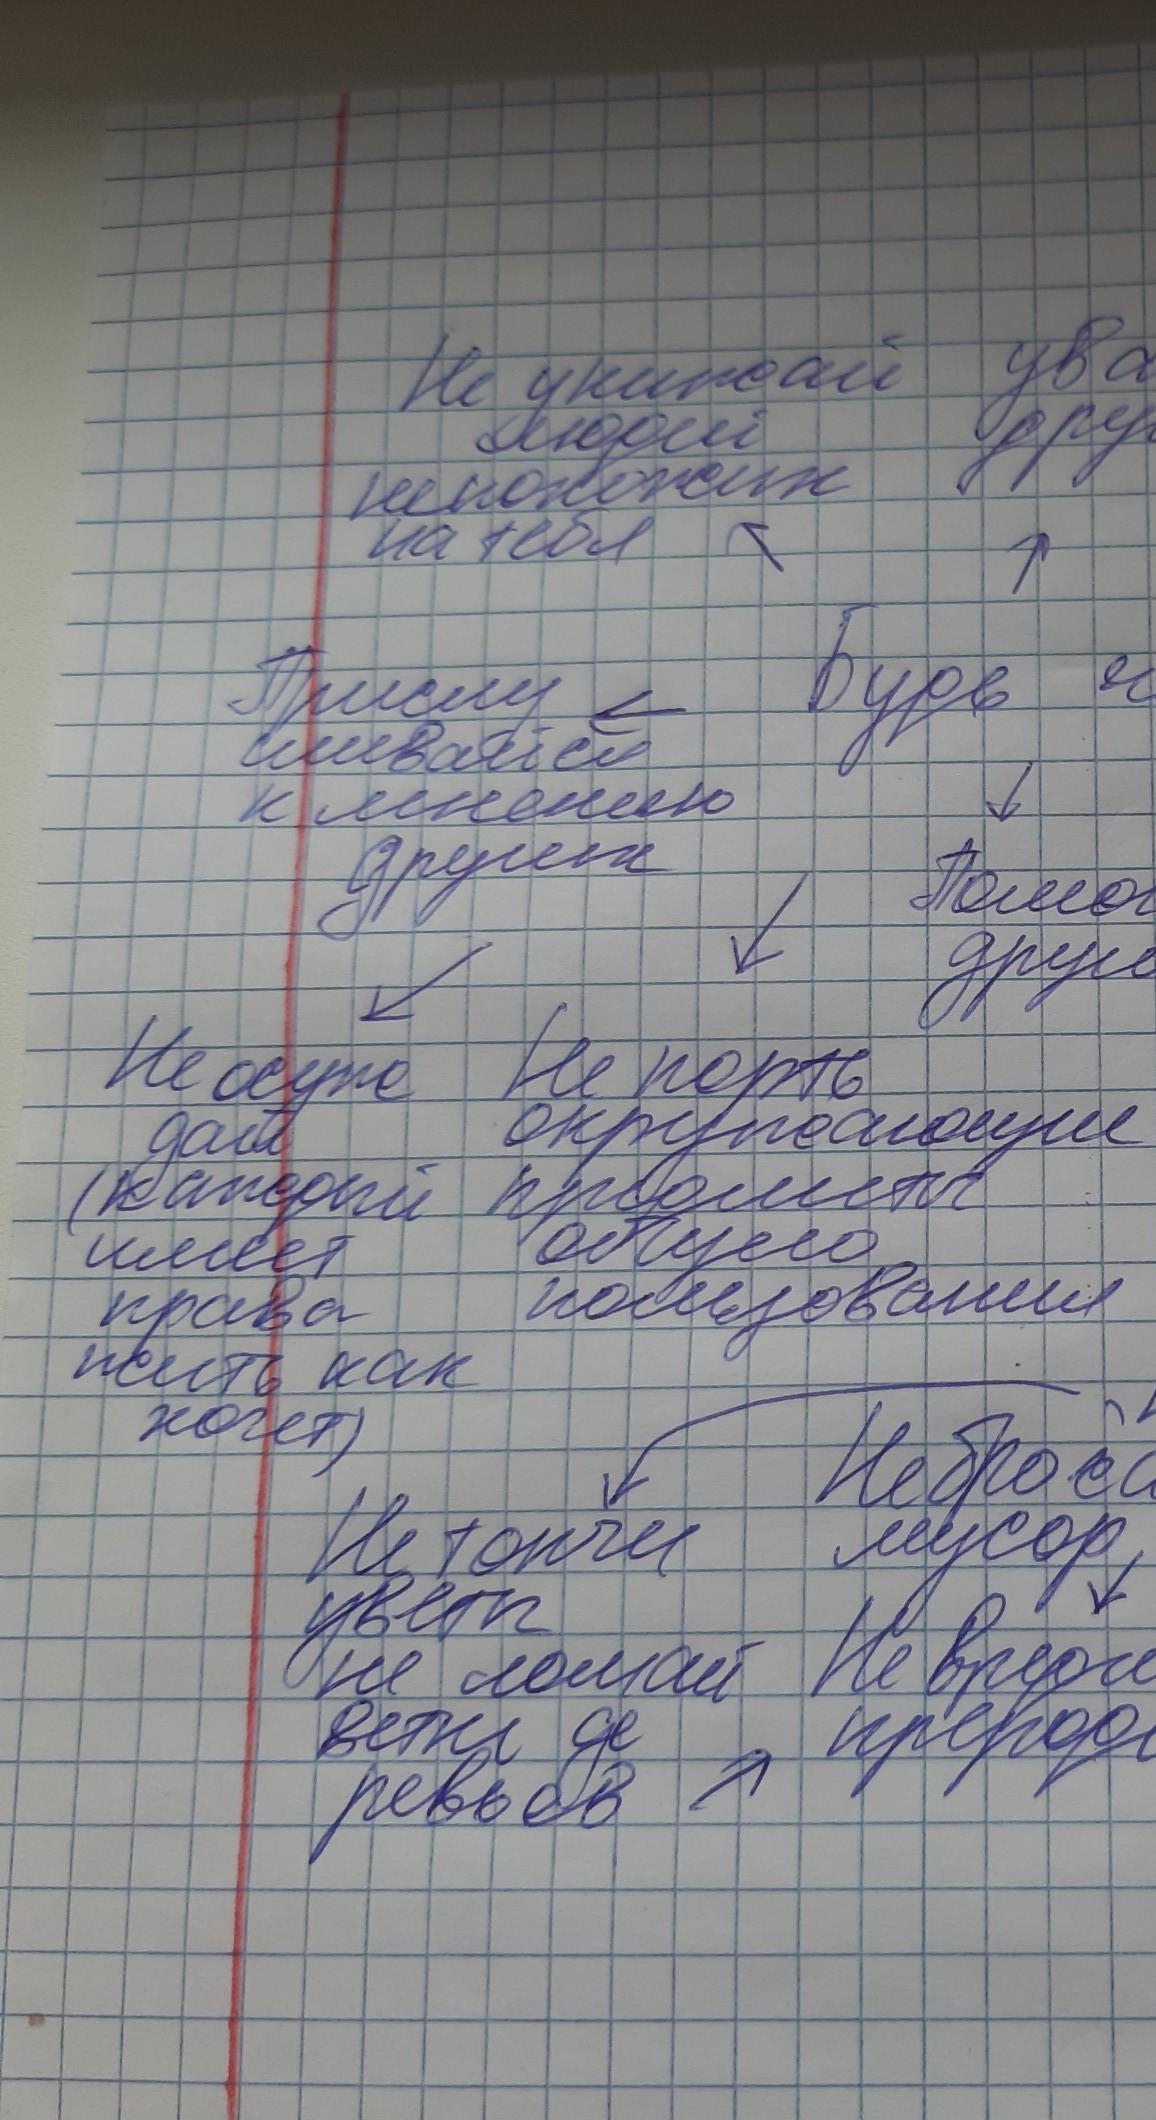 Не унижай
людей
непохожих
на тебя
ува
друг
Будь ч
Прислу
шивайся
к мнению
других
Помог
друго
Не осуж
дай
(каждый
имеет
права
жить как
хочет)
Не порть
окружающие
предметы
общего
пользования
Не броса
мусор
Не топчи
цветы
не ломай
ветки де
ревьев
Не вреди
природ